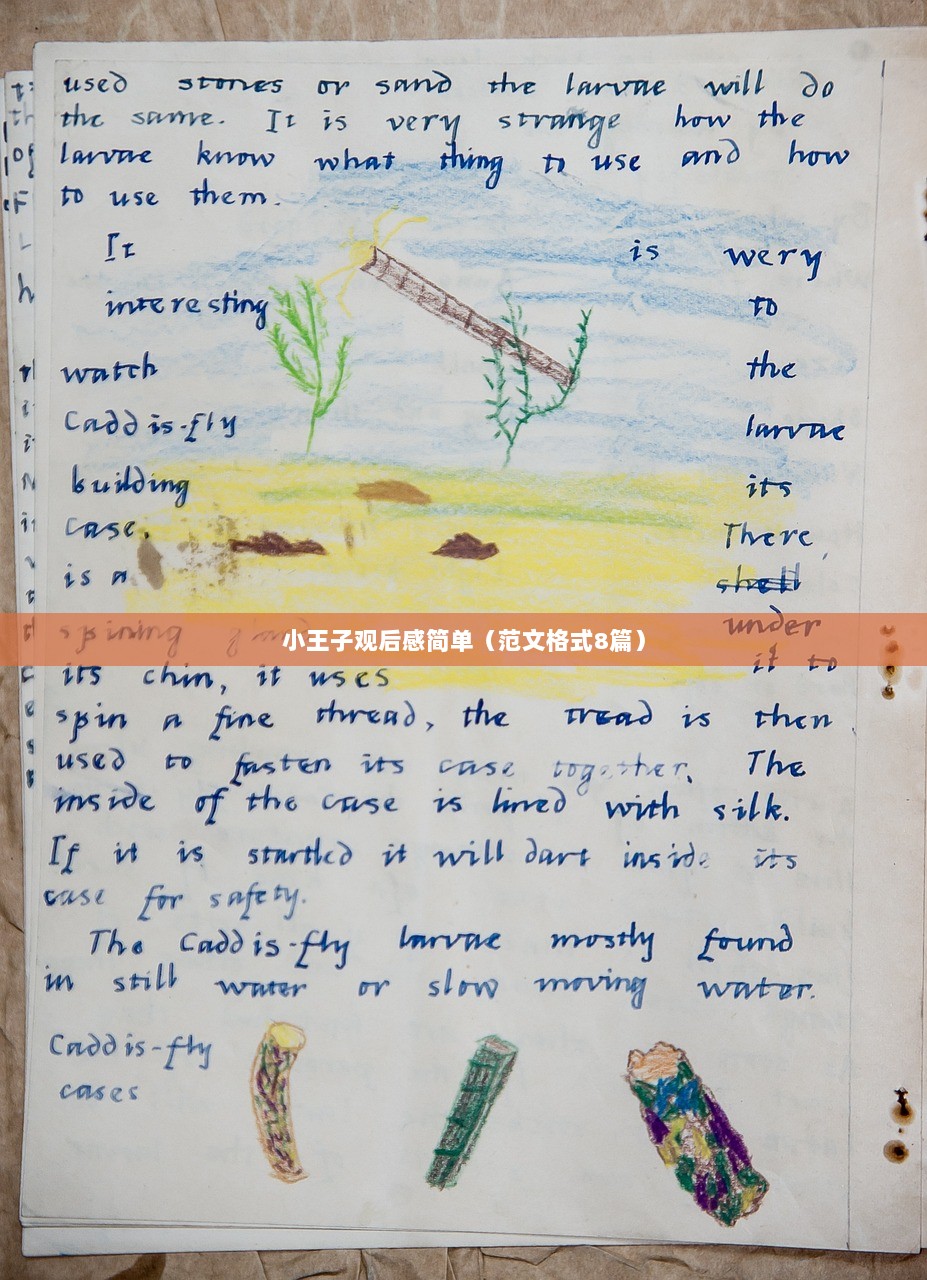 used stones or sand the larvae will do
the same. It is very strange how the
larvae know what thing to use and how
to use them.
It is wery
interesting to
watch the
Caddis-fly larvae
building its
case. There
is a shell
spining gland under
小王子观后感简单（范文格式8篇）
its chin, it uses it to
spin a fine thread, the tread is then
used to fasten its case together. The
inside of the case is lined with silk.
If it is startled it will dart inside its
case for safety.
The Caddis-fly larvae mostly found
in still water or slow moving water.
Caddis-fly
cases